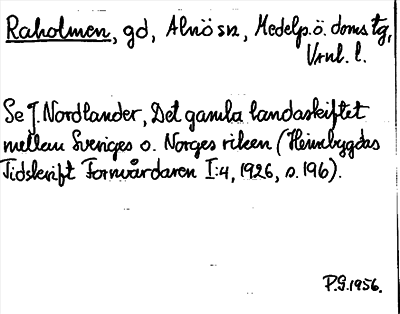 Raholmen, gd, Alnö sn, Medelp. ö. doms tg,
Vrnl. l.
Se J. Nordlander, Det gamla landaskiftet
mellan Sveriges o. Norges riken (Heimbygdas
Tidskrift Fornvårdaren I:4, 1926, s. 196).
P.G. 1956.